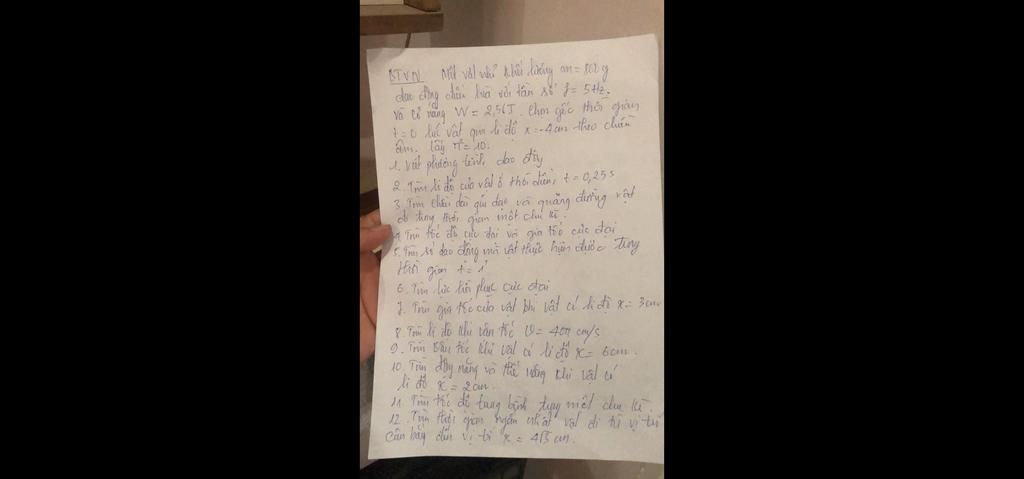 BTVN Một vật nhỏ khối lượng m = 800g
dao động điều hoà với tần số f = 5Hz.
và cơ năng W = 2,56J. Chọn gốc thời gian
t = 0 lúc vật qua li độ x = -4cm theo chiều
âm. Lấy π² = 10.
1. Viết phương trình dao động
2. Tìm li độ của vật ở thời điểm t = 0,25s
3. Tìm chiều dài quỹ đạo và quãng đường vật
đi trong thời gian một chu kì.
4. Tìm tốc độ cực đại và gia tốc cực đại
5. Tìm số dao động mà vật thực hiện được trong
thời gian t = 1'
6. Tìm lực hồi phục cực đại
7. Tìm gia tốc của vật khi vật có li độ x = 3cm
8. Tìm li độ khi vận tốc v = 40π cm/s
9. Tìm vận tốc khi vật có li độ x = 6cm.
10. Tìm động năng và thế năng khi vật có
li độ x = 2cm.
11. Tìm tốc độ trung bình trong một chu kì
12. Tìm thời gian ngắn nhất vật đi từ vị trí
cân bằng đến vị trí x = 4√3 cm.